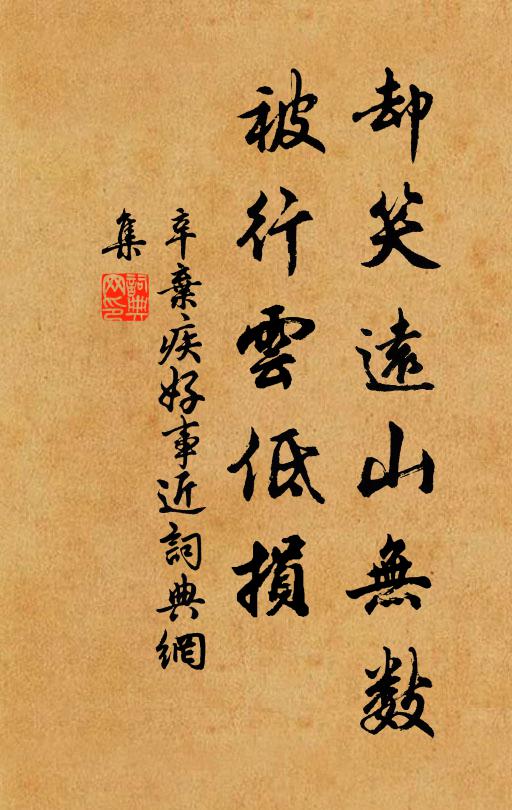 却笑遠山無數
被行雲低損
辛棄疾好事近詞典網
集
詞典網印